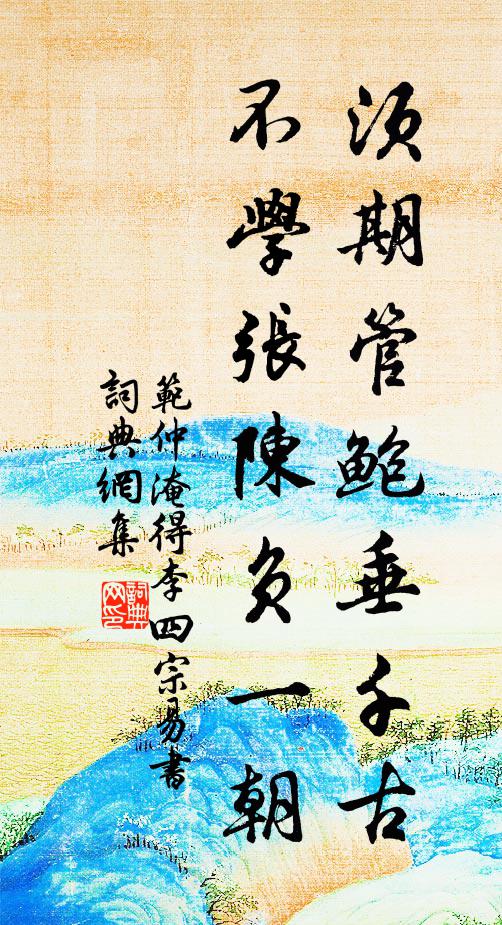 須期管鮑垂千古
不學張陳負一朝
範仲淹得李四宗易書
詞典網集
詞典
网印